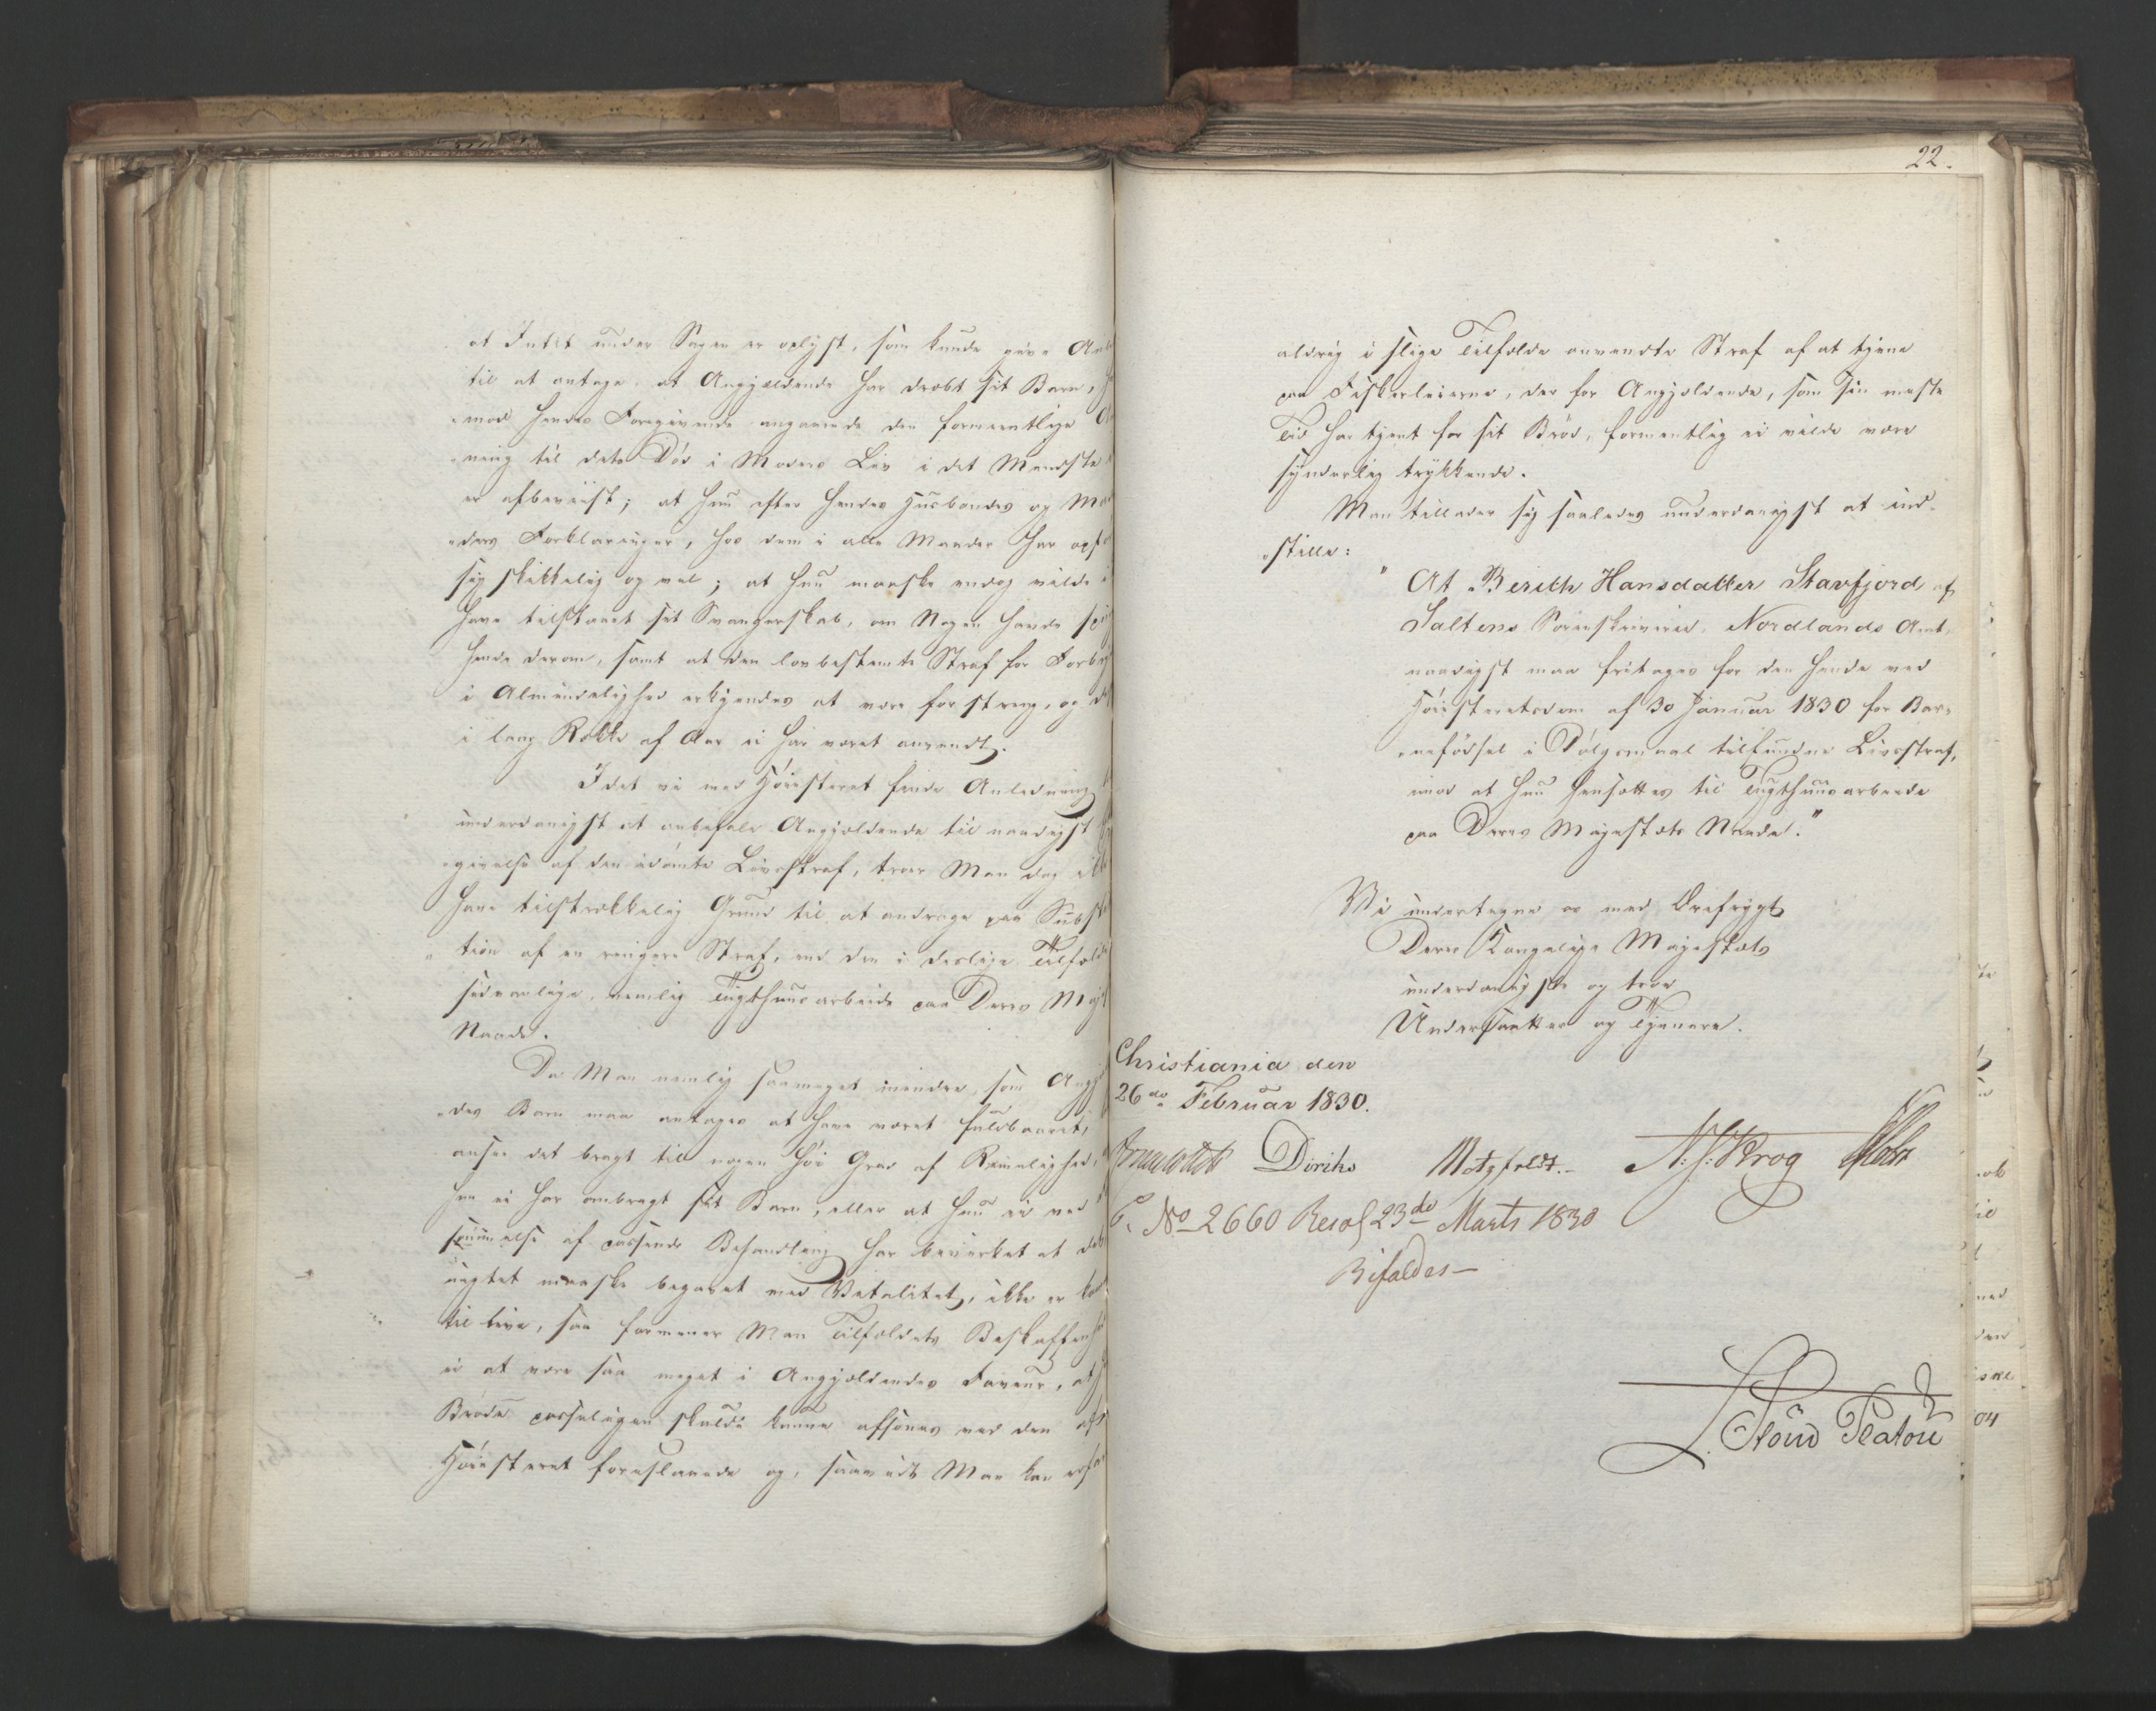 at Intet under Sagen er oplyst, som kunde give
til at antage, at Angjældende har dræbt sit Barn,
mod hendes Foregivende angaaende den formeentlige
ning til dets Død i Moders Liv i det Mindste
er afbeviist; at hun efter hendes Huusbondes og
ders Forklaringer, hos dem i alle Maader har
sig skikkelig og vel; at hun maaske endog vilde
have tilstaaet sit Svangerskab, om Nogen havde
hende derom, samt at den lovbestemte Straf for
i Almindelighed erkjendes at være for streng, og
i lang Række af Aar ei har været anvendt.
Idet vi med Høiesteret finde Anledning
underdanigst at anbefale Angjældende til naadigst
givelse af den idømte Livsstraf, troer Man dog
have tilstrækkelig Grund til at andrage paa
tion af en ringere Straf, end den i deslige
sædvanlige, nemlig Tugthuusarbeide paa Deres
Naade.
Da Man nemlig saameget mindre, som
des Barn maa antages at have været fuldbaaret,
anseer det bragt til nogen høi Grad af Rimelighed,
hun ei har ombragt sit Barn, eller at hun ei ved
sømmelse af passende Behandling har bevirket at
uagtet maaske begavet med Vitalitet, ikke er
til Live, saa formener Man Tilfældets
ei at være saa meget i Angjældendes Faveur, at
Brøde passeligen skulde kunne afsones ved den
Høiesteret foreslaaede og, saavidt Man kan
22.
aldrig i slige Tilfælde anvendte Straf af at tjene
paa Fiskerleierne, der for Angjældende, som sin meste
Tid har tjent for sit Brød, formentlig ei vilde være
synderlig trykkende.
Man tillader sig saaledes underdanigst at ind-
stille:
"At Berith Hansdatter Stavfjord af
Saltens Sorenskriverie, Nordlands Amt,
naadigst maa fritages for den hende ved
Høiesteretsdom af 30 Januar 1830 for Bar-
nefødsel i Dølgsmaal tilfundne Livsstraf,
imod at hun hensættes til Tugthuusarbeide
paa Deres Majestæts Naade."
Vi undertegne os med Ærefrygt
Deres Kongelige Majestæts
underdanigste og troe
Undersaatter og Tjenere.
Christiania den
26de Februar 1830.
Diriks Motzfeldt. N. J. Krog
No 2660 Resol. 23de Marts 1830
Bifaldes